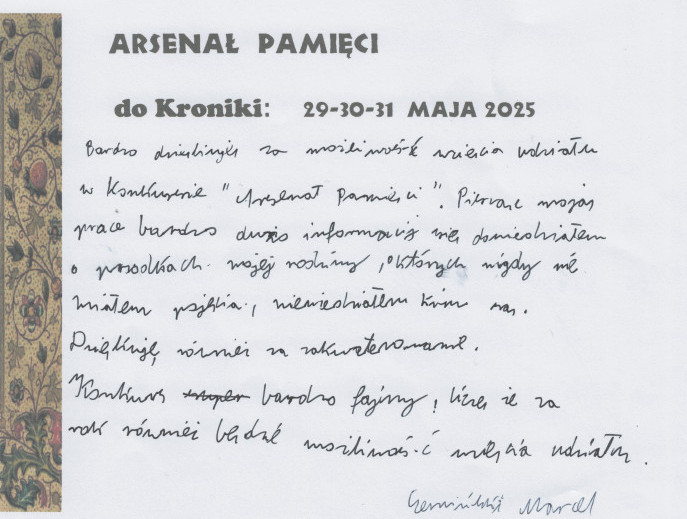 ARSENAŁ PAMIĘCI
do Kroniki: 29-30-31 MAJA 2025
Bardzo dziękuję za możliwość wzięcia udziału
w Konkursie "Arsenał Pamięci". Pisząc moją
pracę bardzo dużo informacji się dowiedziałem
o przodkach mojej rodziny, o których nigdy nie
miałem pojęcia, nie wiedziałem kim są.
Dziękuję również za zakwaterowanie.
Konkurs super bardzo fajny, liczę że za
rok również będzie możliwość wzięcia udziału.
Marcel